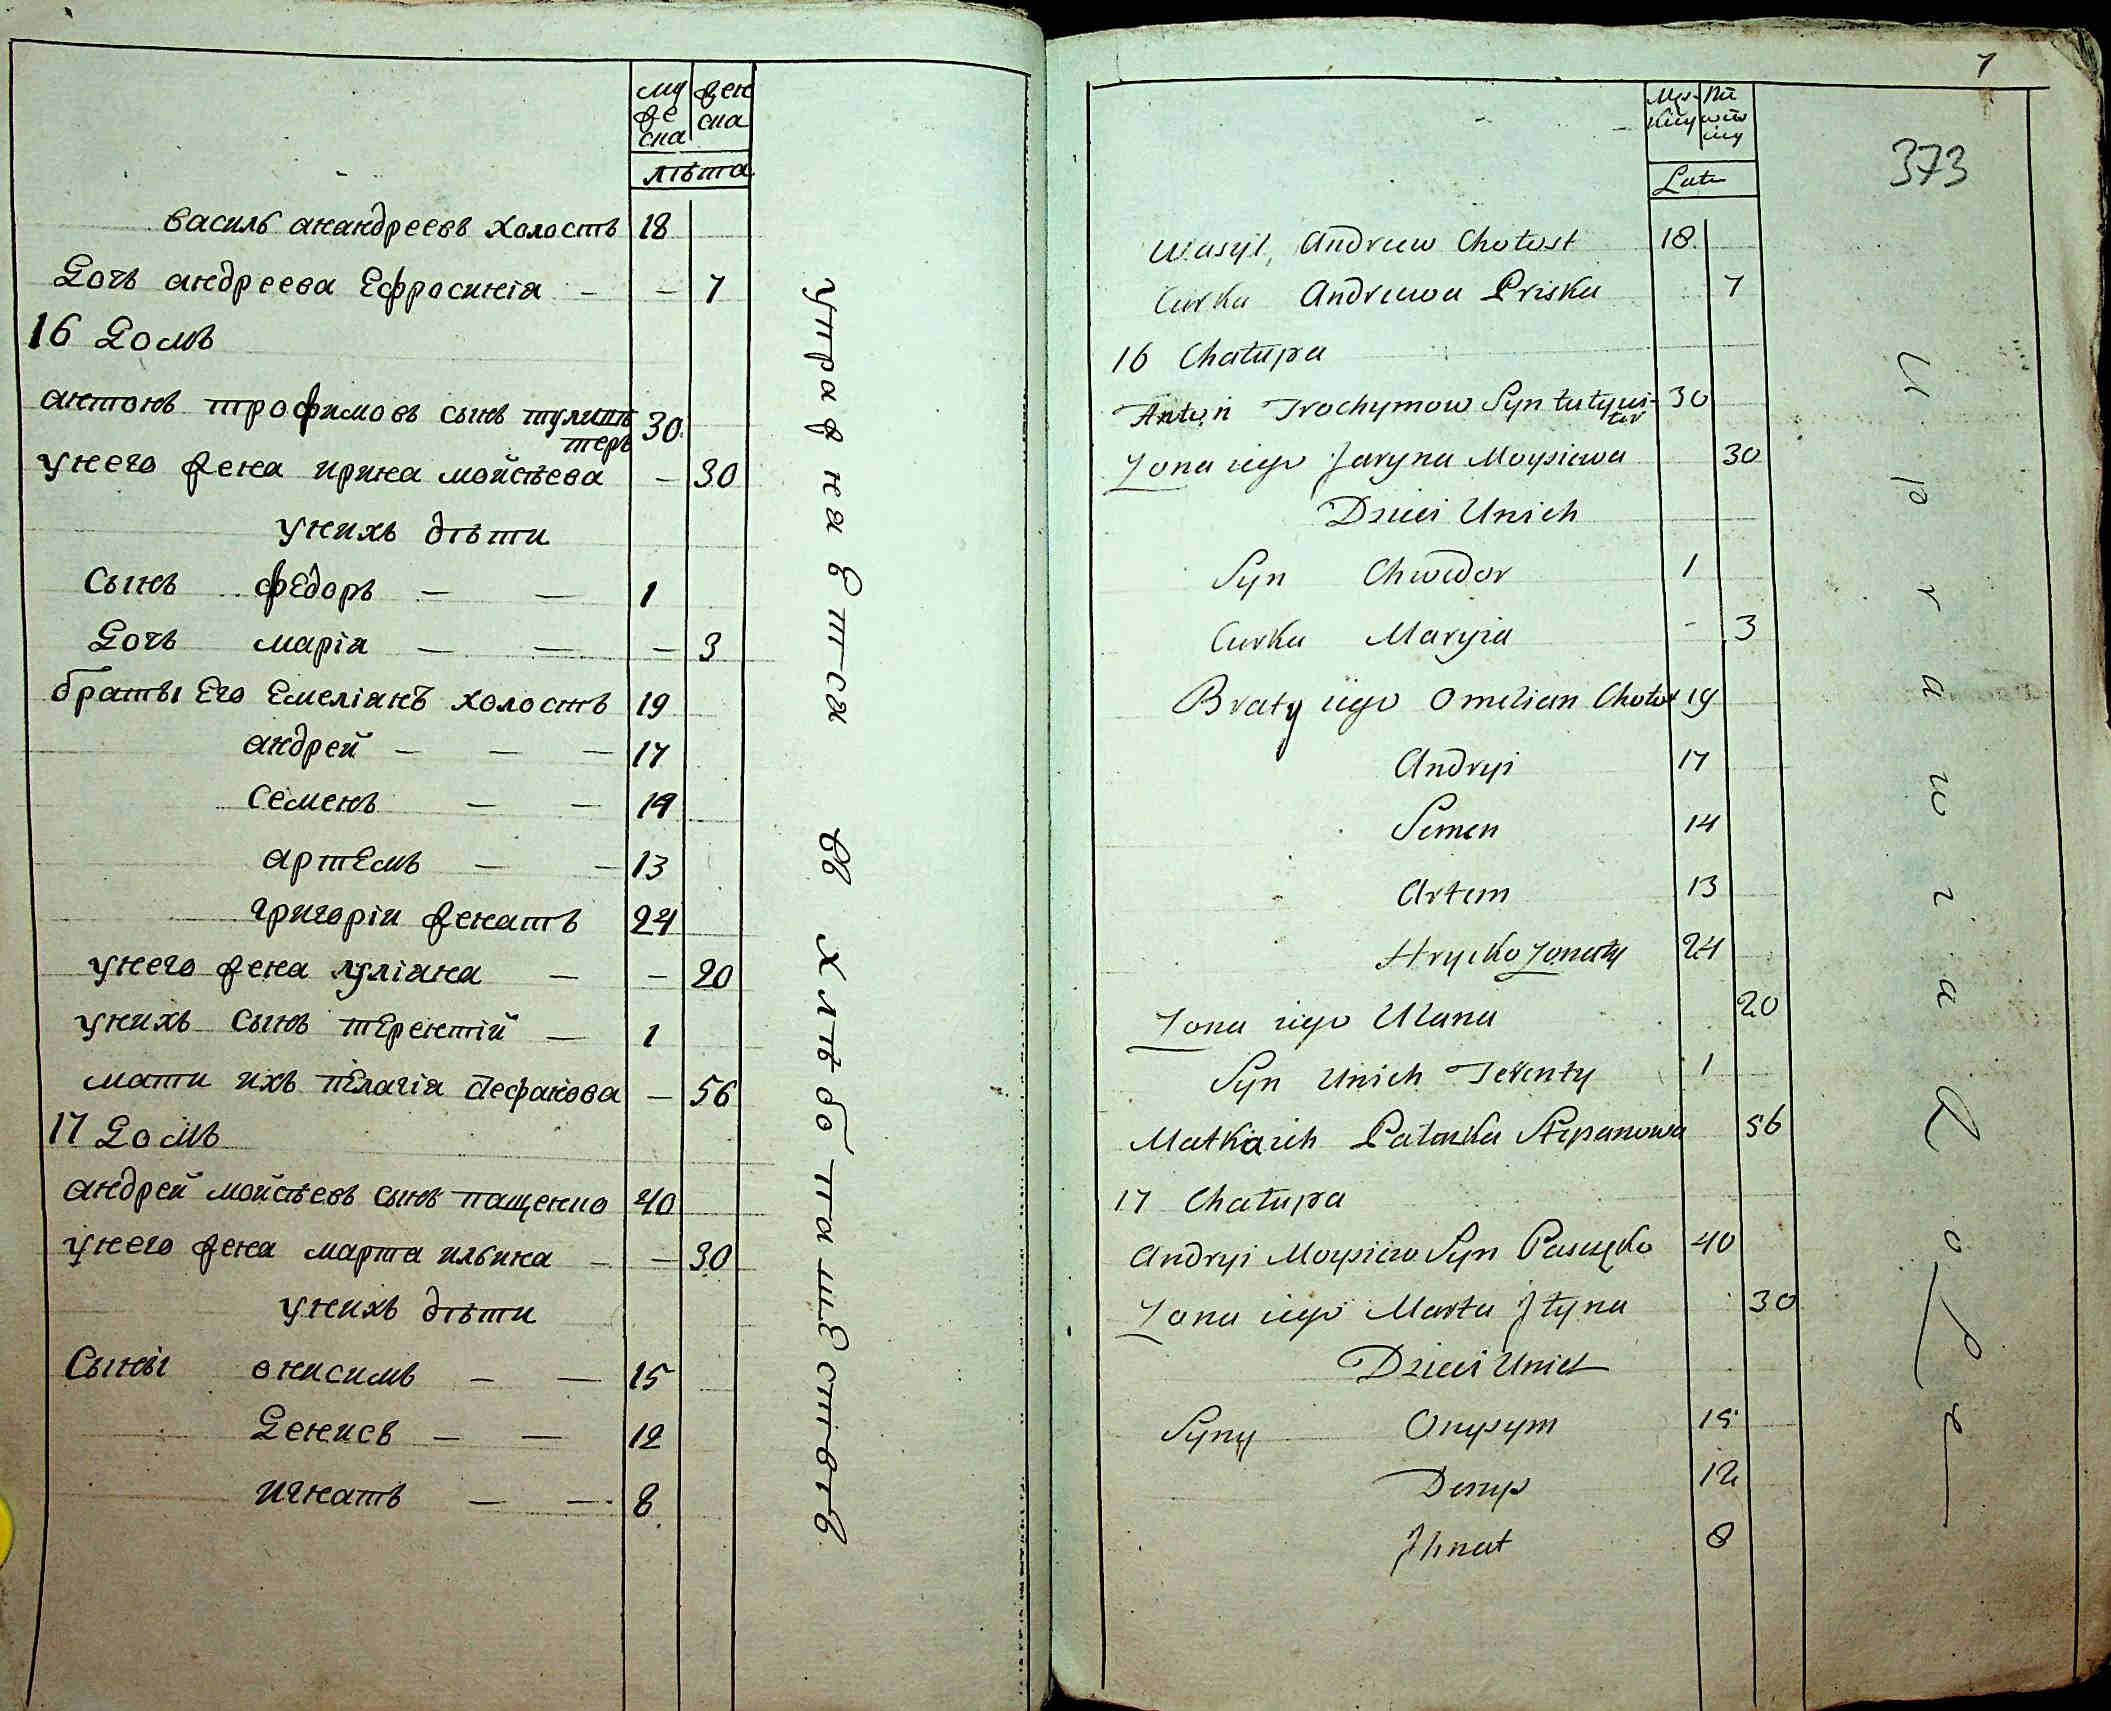 му
же
ска
жен
ска
лѣта
василь анандреевъ холостъ 18
Дочь андреева Ефросинія — — 7
16 Домъ
антонъ трофимовъ сынъ 30
теръ
унего жена ирина мойсѣева — 30
унихъ дѣти
Сынъ фЕдоръ — — 1
Дочь марія — — — 3
братьı Его Емеліанъ холостъ 19
андрей — — — 17
Семенъ — — 14
артЕмъ — — 13
григоріи женатъ 24
унего жена уліана — — 20
унихъ сынъ тЕрентій — 1
мати ихъ пЕлагія стефанова — 56
17 Домъ
андрей мойсѣевъ сынъ пащенко 40
унего жена марта ильина — — 30
унихъ дѣти
Сыны онисимъ — — 15
Денисъ — — 12
игнатъ — — 8
упражнаЕтся въ хлѣбопашЕствѣ
7
373
Lata
Wasyl, Andreew Chołost 18
Curka Andreewa Priska 7
16 Chałupa
Anton Trochymow Syn 30
Zona iego Jaryna Moysiewa 30
Dzieci Unich
Syn Chwedor 1
Curka Maryia - 3
Braty iego Omelian Chołost 19
Andryi 17
Semen 14
Artem 13
Hrycko Zonaty 24
Zona iego Ulana 20
Syn Unich Terenty 1
Matka ich Pałazka Stepanowa 56
17 Chałupa
Andryi Moysiew Syn Paszczeko 40
Zona iego Marta Jłyna 30
Dzieci Unich
Syny Onysym 15
Denys 12
Jhnat 8
Uprawia Role